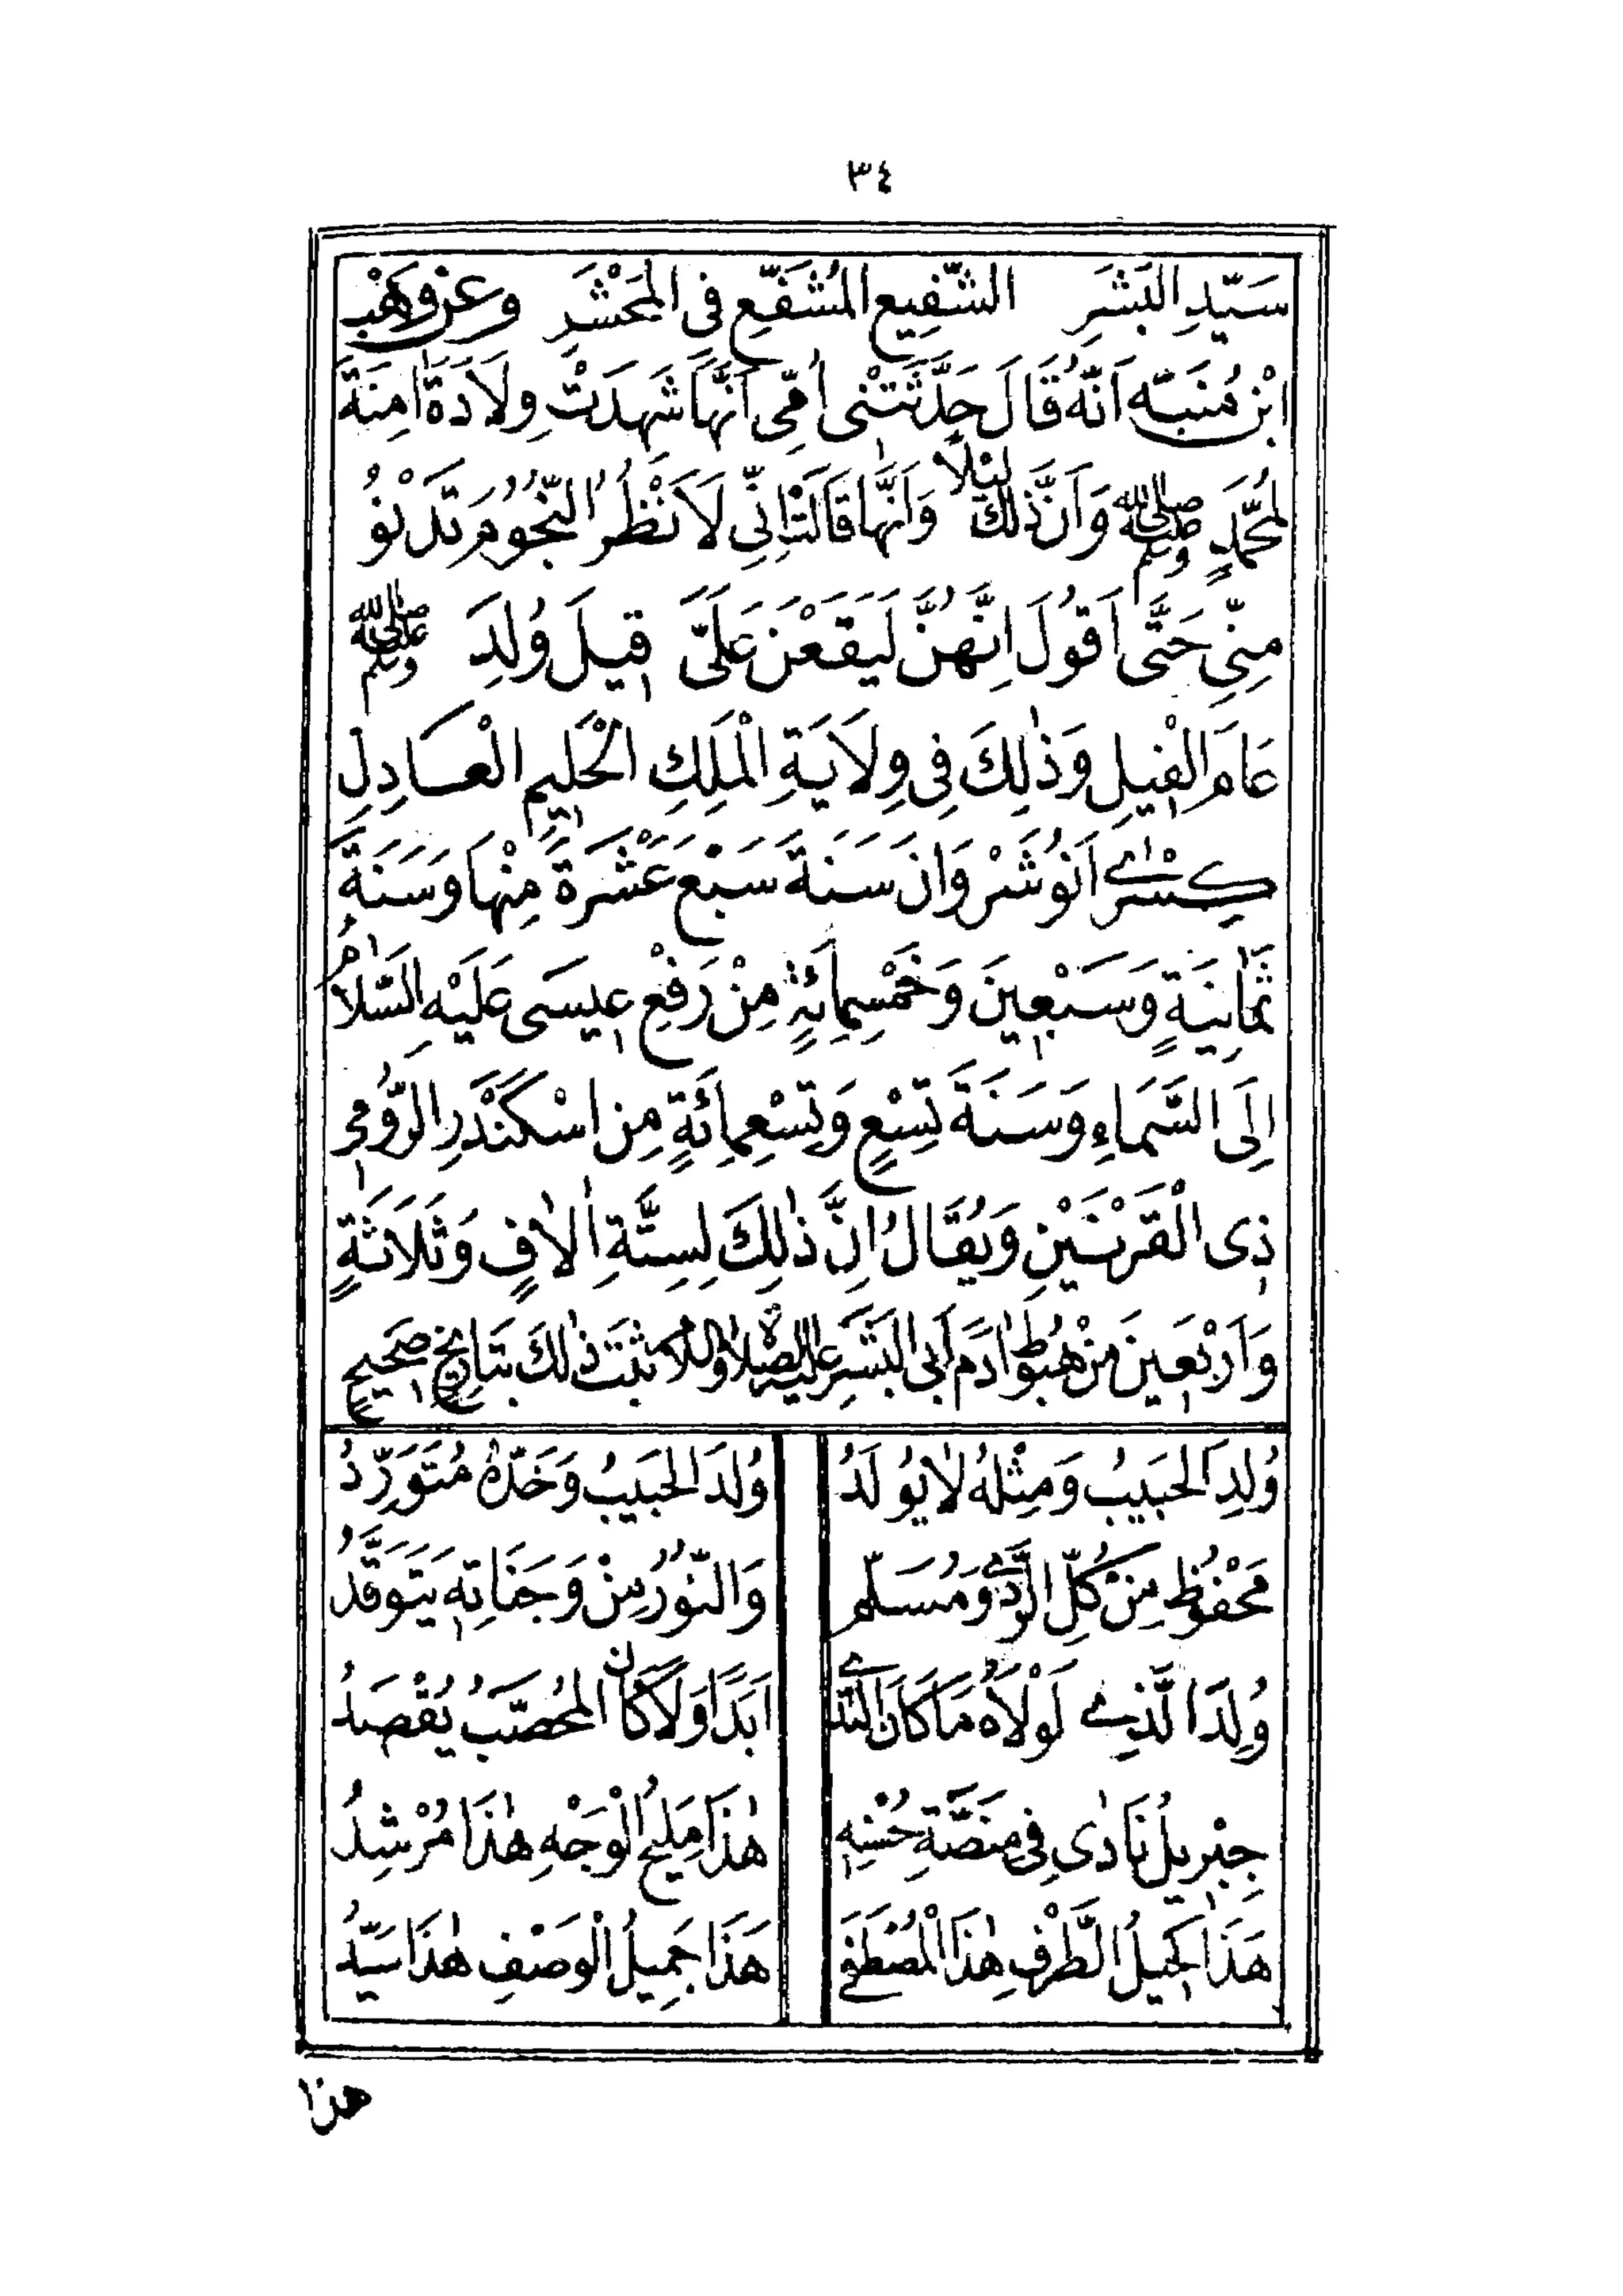 ٣٤
سَيِّدِ الْبَشَرِ الشَّفِيعِ الْمُشَفَّعِ فِى الْمَحْشَرِ وَعَنْ وَهْبِ
ابْنِ مُنَبِّهٍ اَنَّهُ قَالَ حَدَّثَتْنِى اُمِّى اَنَّهَا شَهِدَتْ وِلَادَةَ اٰمِنَةَ
لِمُحَمَّدٍ ﷺ وَاَنَّ ذٰلِكَ لَيْلًا وَاَنَّهَا قَالَتْ اِنِّى لَاَنْظُرُ النُّجُومَ تَدْنُو
مِنِّى حَتَّى اَقُولَ اِنَّهُنَّ لَيَقَعْنَ عَلَىَّ قِيلَ وُلِدَ ﷺ
عَامَ الْفِيلِ وَذٰلِكَ فِى وِلَايَةِ الْمَلِكِ الْحَلِيمِ الْعَادِلِ
كِسْرٰے اَنُوشَرْوَانَ سَنَةَ سَبْعَ عَشْرَةَ مِنْهَا وَسَنَةَ
ثَمَانِيَةٍ وَسَبْعِينَ وَخَمْسِمِائَةٍ مِنْ رَفْعِ عِيسَى عَلَيْهِ السَّلَامُ
اِلَى السَّمَاءِ وَسَنَةَ تِسْعٍ وَتِسْعِمِائَةٍ مِنْ اسْكَنْدَرِ الرُّومِىِّ
ذِى الْقَرْنَيْنِ وَيُقَالُ اِنَّ ذٰلِكَ لِسِتَّةِ اٰلَافٍ وَثَلَاثَةٍ
وَاَرْبَعِينَ مِنْ هُبُوطِ اٰدَمَ اَبِى الْبَشَرِ عَلَيْهِ الصَّلَاةُ وَالسَّلَامُ ثَبَتَ ذٰلِكَ بِتَارِيخٍ صَحِيحٍ
وُلِدَ الْحَبِيبُ وَمِثْلُهُ لَا يُولَدُ وُلِدَ الْحَبِيبُ وَخَدُّهُ مُتَوَرِّدُ
مَحْفُوظٌ مِنْ كُلِّ الرَّدٰے وَمُسَلَّم وَالنُّورُ مِنْ وَجَنَاتِهِ يَتَوَقَّدُ
وُلِدَ الَّذِے لَوْلَاهُ مَا كَانَ النَّدٰے اَبَدًا وَلَا كَانَ الْمُحَصَّبُ يُقْصَدُ
جِبْرِيلُ نَادٰى فِى مِنَصَّةِ حُسْنِهِ هٰذَا مَلِيحُ الْوَجْهِ هٰذَا مُرْشِدُ
هَذَا كَحِيلُ الطَّرْفِ هٰذَا الْمُصْطَفَے هَذَا جَمِيلُ الْوَصْفِ هٰذَا سَيِّدُ
هذا